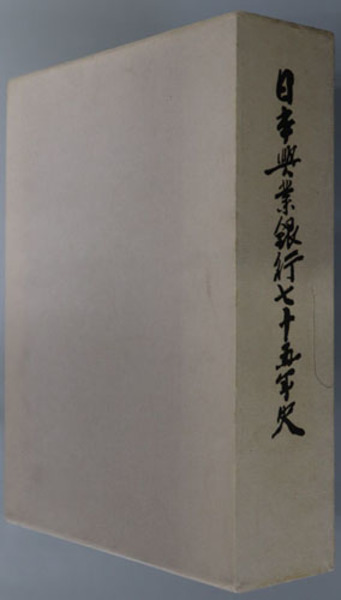 日本興業銀行七十五年史